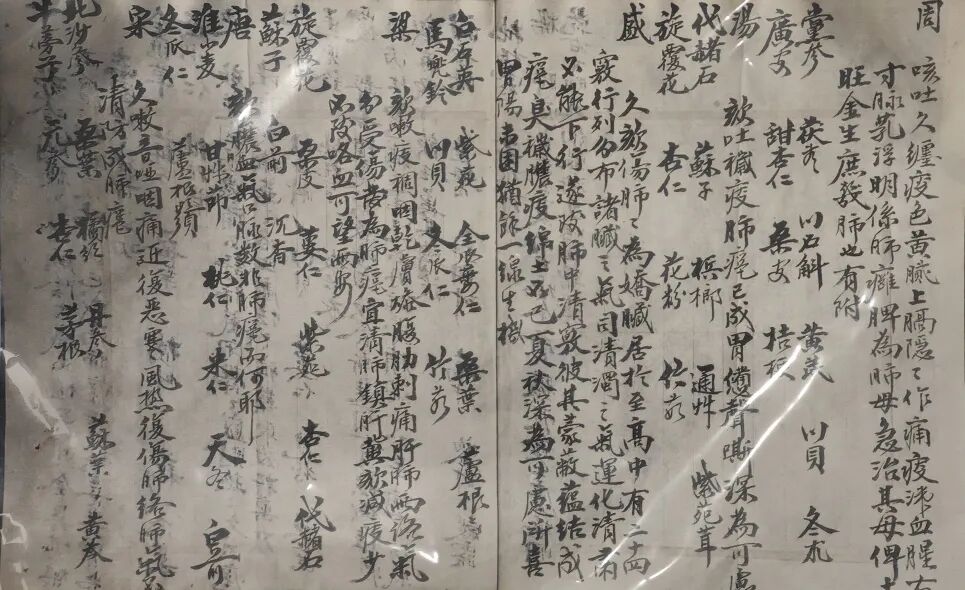 周
咳吐久纏痰色黄臌上膈隱々作痛痰涎血腥右
寸脉芤浮明係肺癰脾為肺母急治其母俾土
旺金生庶發肺也有附
黨參 茯苓 川石斛 黄芪 川貝 冬瓜
廣皮 甜杏仁 桑皮 桔梗
湯 欬吐穢痰肺痿已成胃憊聲嘶深為可慮
代赭石 蘇子 檳榔 通艸 紫苑茸
旋覆花 杏仁 花粉 仁
盛 久欬傷肺々為嬌臟居於至高中有二十四
竅行列分布諸臟之氣司清濁之氣運化清肅
不能下行遂致肺中清竅彼其蒙蔽蘊結成
痿臭穢膿痰綿上不已夏秋深為可慮所喜
胃陽未困猶餘一線生機
白石英 紫苑 全瓜蔞仁 桑葉 蘆根
馬兜鈴 川貝 冬瓜仁 竹茹
梁 欬嗽痰稠咽乾腹肋刺痛肝肺兩絡氣
分受傷當為肺痿宜清肺鎮肝無欬減痰少
不致咯血可望兩安
旋覆花 桑皮 蔞仁 紫苑 杏仁 代赭石
蘇子 白前 沉香
唐 欬膿血氣口脉数非肺痿而何耶
淮小麦 甘艸節 桃仁 米仁 天冬
冬瓜仁 蘆根
宋 久嗽音啞咽痛近復恶寒風熱復傷肺絡肺氣
清方成肺痿
北沙參 桑葉 橘 丹參 蘇葉 黄芩
斗夢子 元參 杏仁 茅根